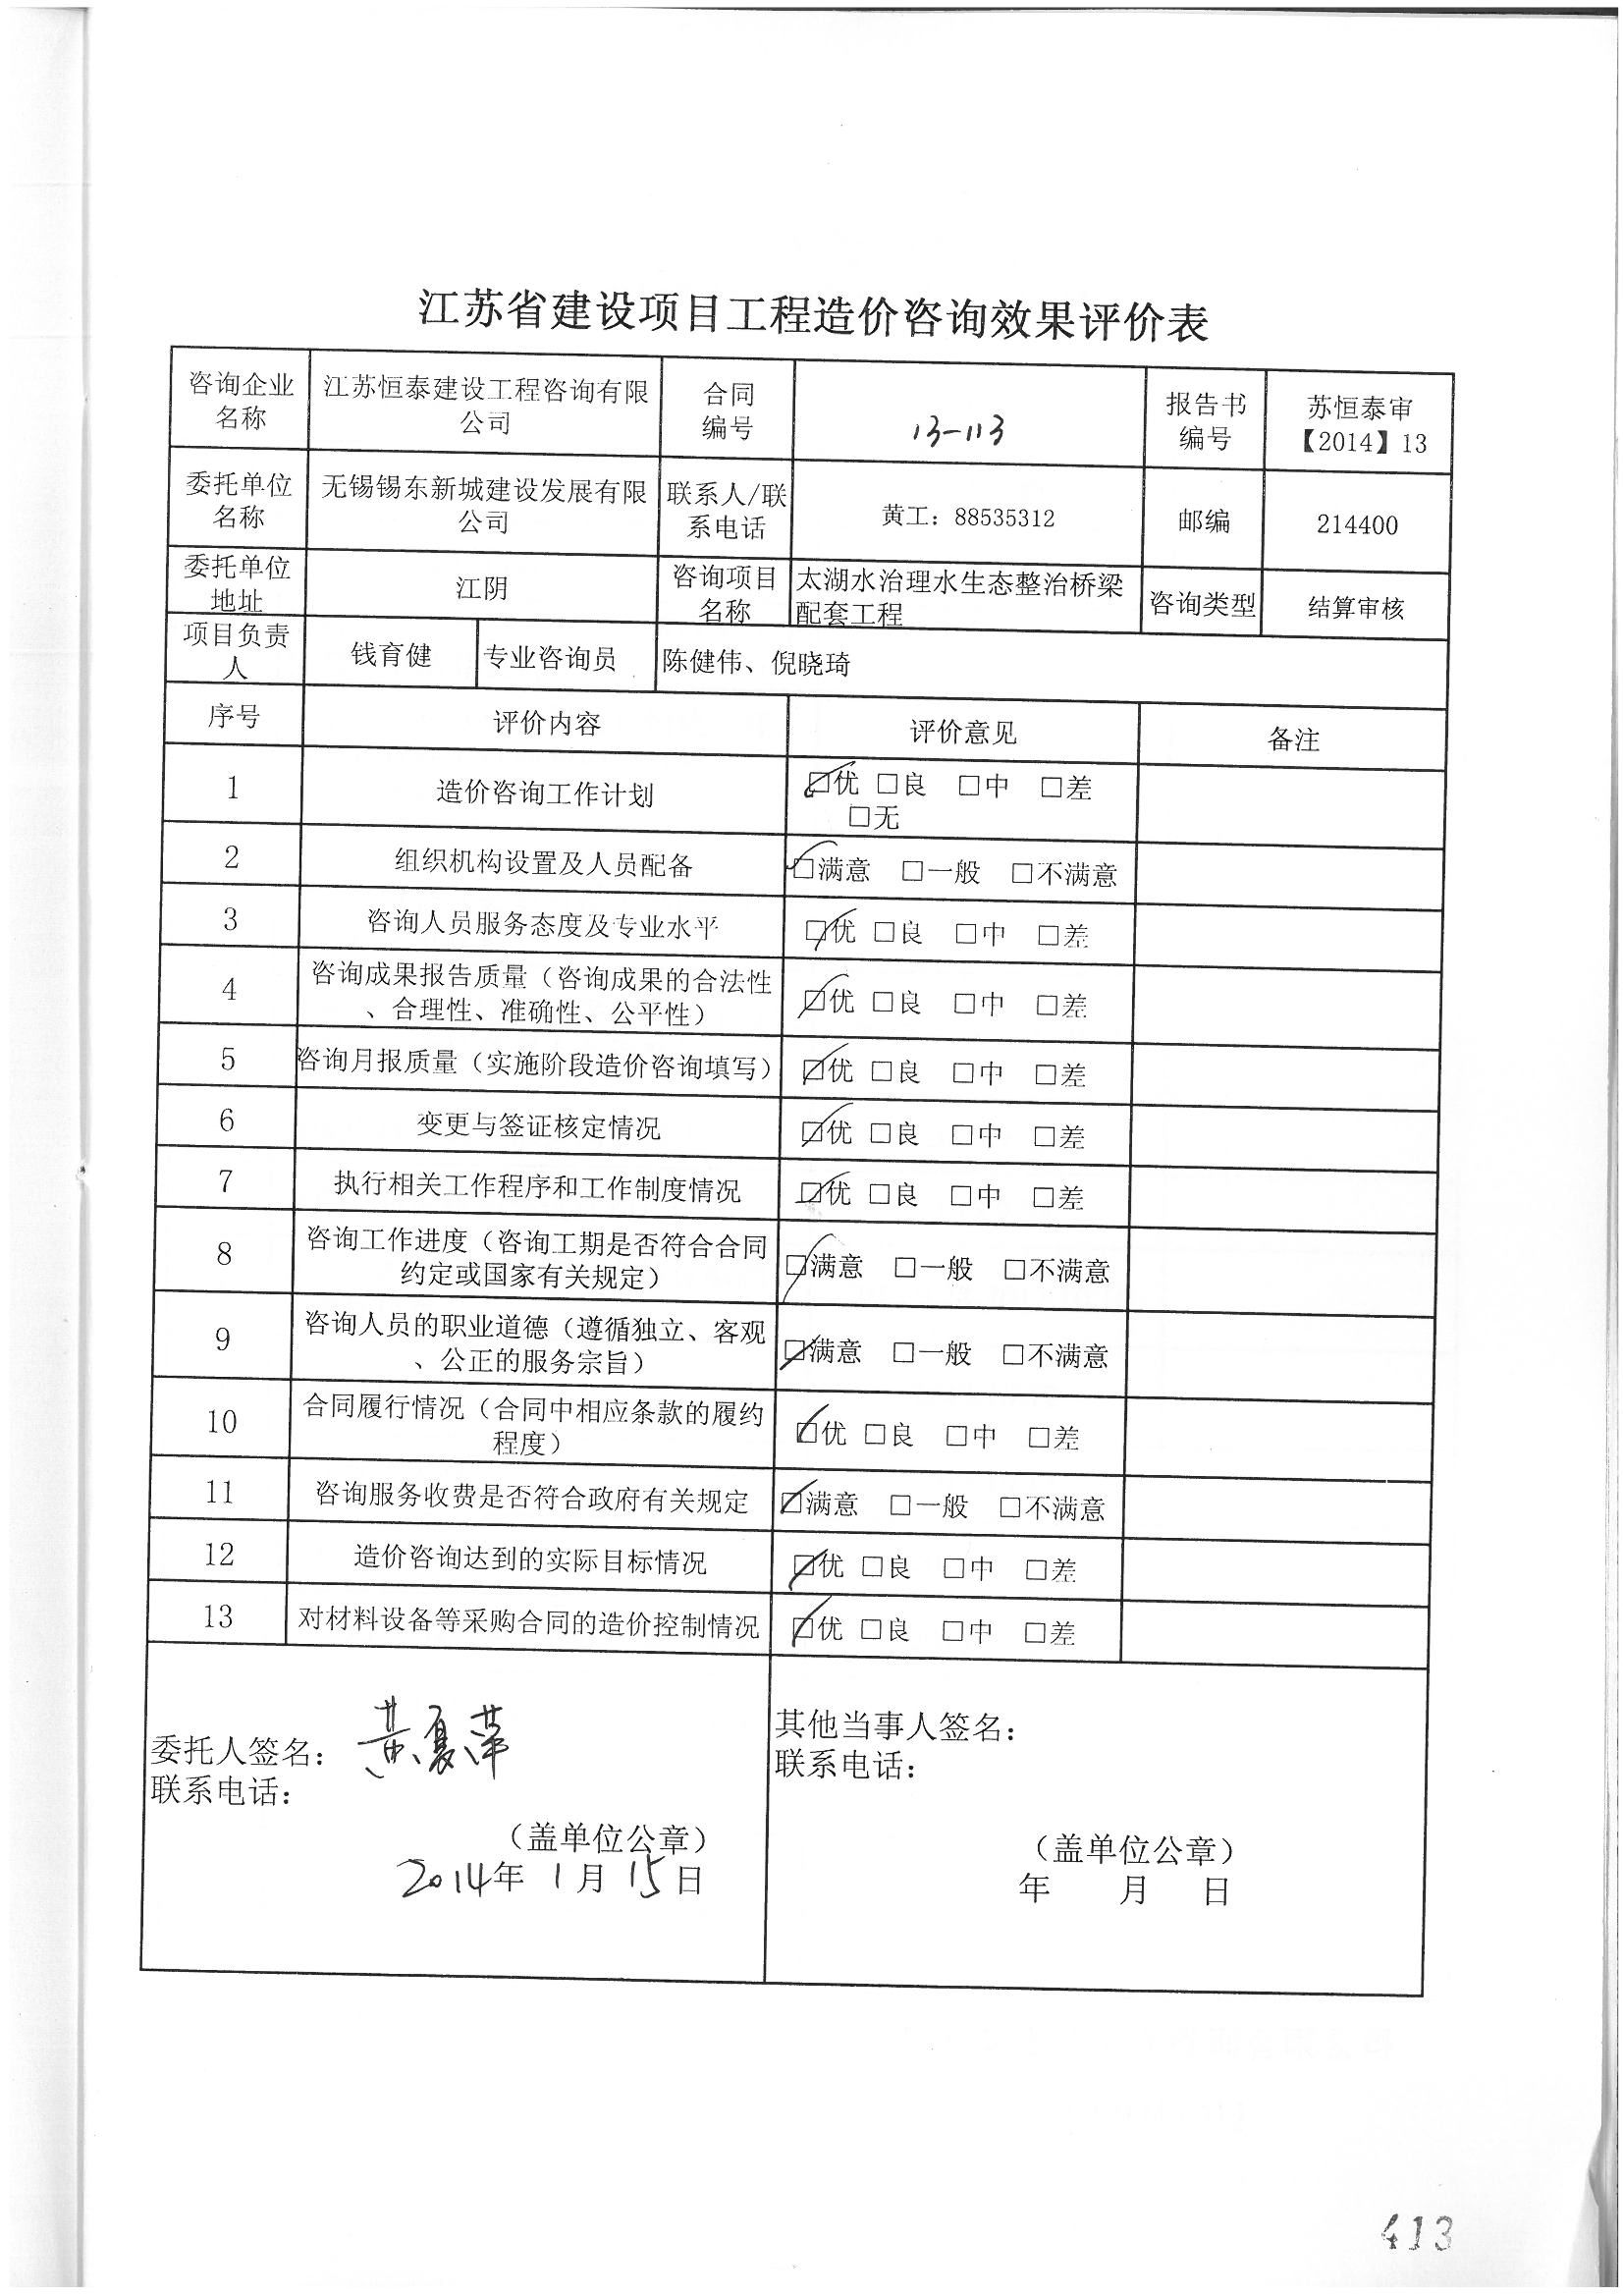 江苏省建设项目工程造价咨询效果评价表
咨询企业名称 江苏恒泰建设工程咨询有限公司 合同编号 13-113 报告书编号 苏恒泰审【2014】13
委托单位名称 无锡锡东新城建设发展有限公司 联系人/联系电话 黄工：88535312 邮编 214400
委托单位地址 江阴 咨询项目名称 太湖水治理水生态整治桥梁配套工程 咨询类型 结算审核
项目负责人 钱育健 专业咨询员 陈健伟、倪晓琦
序号 评价内容 评价意见 备注
1 造价咨询工作计划 ☑优 □良 □中 □差 □无
2 组织机构设置及人员配备 ☑满意 □一般 □不满意
3 咨询人员服务态度及专业水平 ☑优 □良 □中 □差
4 咨询成果报告质量（咨询成果的合法性、合理性、准确性、公平性） ☑优 □良 □中 □差
5 咨询月报质量（实施阶段造价咨询填写） ☑优 □良 □中 □差
6 变更与签证核定情况 ☑优 □良 □中 □差
7 执行相关工作程序和工作制度情况 ☑优 □良 □中 □差
8 咨询工作进度（咨询工期是否符合合同约定或国家有关规定） ☑满意 □一般 □不满意
9 咨询人员的职业道德（遵循独立、客观、公正的服务宗旨） ☑满意 □一般 □不满意
10 合同履行情况（合同中相应条款的履约程度） ☑优 □良 □中 □差
11 咨询服务收费是否符合政府有关规定 ☑满意 □一般 □不满意
12 造价咨询达到的实际目标情况 ☑优 □良 □中 □差
13 对材料设备等采购合同的造价控制情况 ☑优 □良 □中 □差
委托人签名：黄夏萍
联系电话：
（盖单位公章）
2014年 1月 15日
其他当事人签名：
联系电话：
（盖单位公章）
年 月 日
413